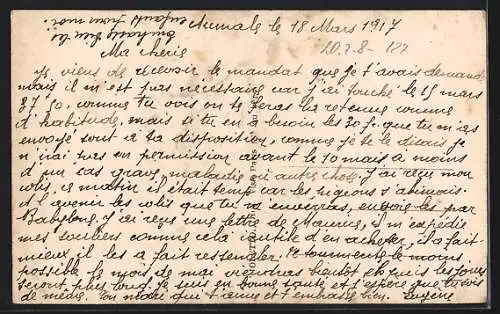 Aumale le 18 Mars 1917
embrasse bien les
enfants pour moi.
20.2.8-122
Ma chérie
Je viens de recevoir le mandat que je t'avais demandé
mais il m'est pas nécessaire car j'ai touché le 15 mars
87.50, comme tu vois on te feras la retenue comme
d'habitude, mais si tu en a besoin les 20 f. que tu m'as
envoyé sont à ta disposition, comme je te le disais je
n'irai pas en permission avant le 10 mai à moins
d'un cas grave, maladie où autre chose. J'ai reçu mon
colis, ce matin il était temp car les pigeons s'abimais.
A l'avenir les colis que tu m'enverras, envoie les par
Babylone. J'ai reçu une lettre de Maurice, il m'expédie
mes souliers comme cela inutile d'en acheter, il a fait
mieux, il les a fait ressemeler. Te tourmente le moins
possible le mois de mai viendras bientôt et puis les jours
seront plus long. Je suis en bonne santé et j'espère que tu sois
de même. Ton mari qui t'aime et t'embrasse bien. Eugène